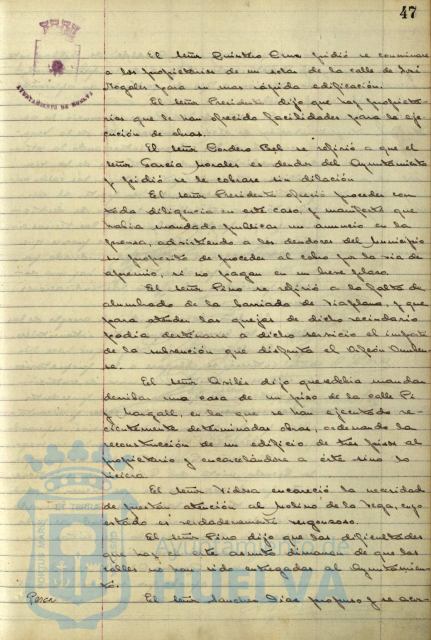 47
AYUNTAMIENTO DE HUELVA
El señor Quintero Cruz pidió se conminara
a los propietarios de un solar de la calle de José
Nogales para su mas rápida edificación.
El señor Presidente dijo que hay propieta-
rios que le han ofrecido facilidades para la eje-
cución de obras.
El señor Cordero Bel se refirió a que el
señor García Morales es deudor del Ayuntamiento
y pidió se le cobrase sin dilación.
El señor Presidente ofreció proceder con
toda diligencia en este caso, y manifestó que
había mandado publicar un anuncio en la
prensa, advirtiendo a los deudores del Municipio
su propósito de proceder al cobro por la vía de
apremio, si no pagan en un breve plazo.
El señor Pino se refirió a la falta de
alumbrado de la barriada de Viaplana, y que
para atender las quejas de dicho vecindario
podía destinarse a dicho servicio el importe
de la subvención que disfruta el Orfeón Onuben-
se.
El señor Avilés dijo que debía mandar
derribar una casa de un piso de la calle Pi
y Margall, en la que se han ejecutado re-
cientemente determinadas obras, ordenando la
reconstrucción de un edificio de tres pisos al
propietario y encarcelándose a éste sino lo
hiciera.
El señor Tidera encareció la necesidad
de prestar atención al Molino de la Vega, cuyo
estado es verdaderamente vergonzoso.
El señor Pino dijo que las dificultades
que hay en este asunto dimanan de que las
calles no han sido entregadas al Ayuntamien-
to.
El señor Sanchez Diaz propuso y se acor-
AYUNTAMIENTO DE
HUELVA